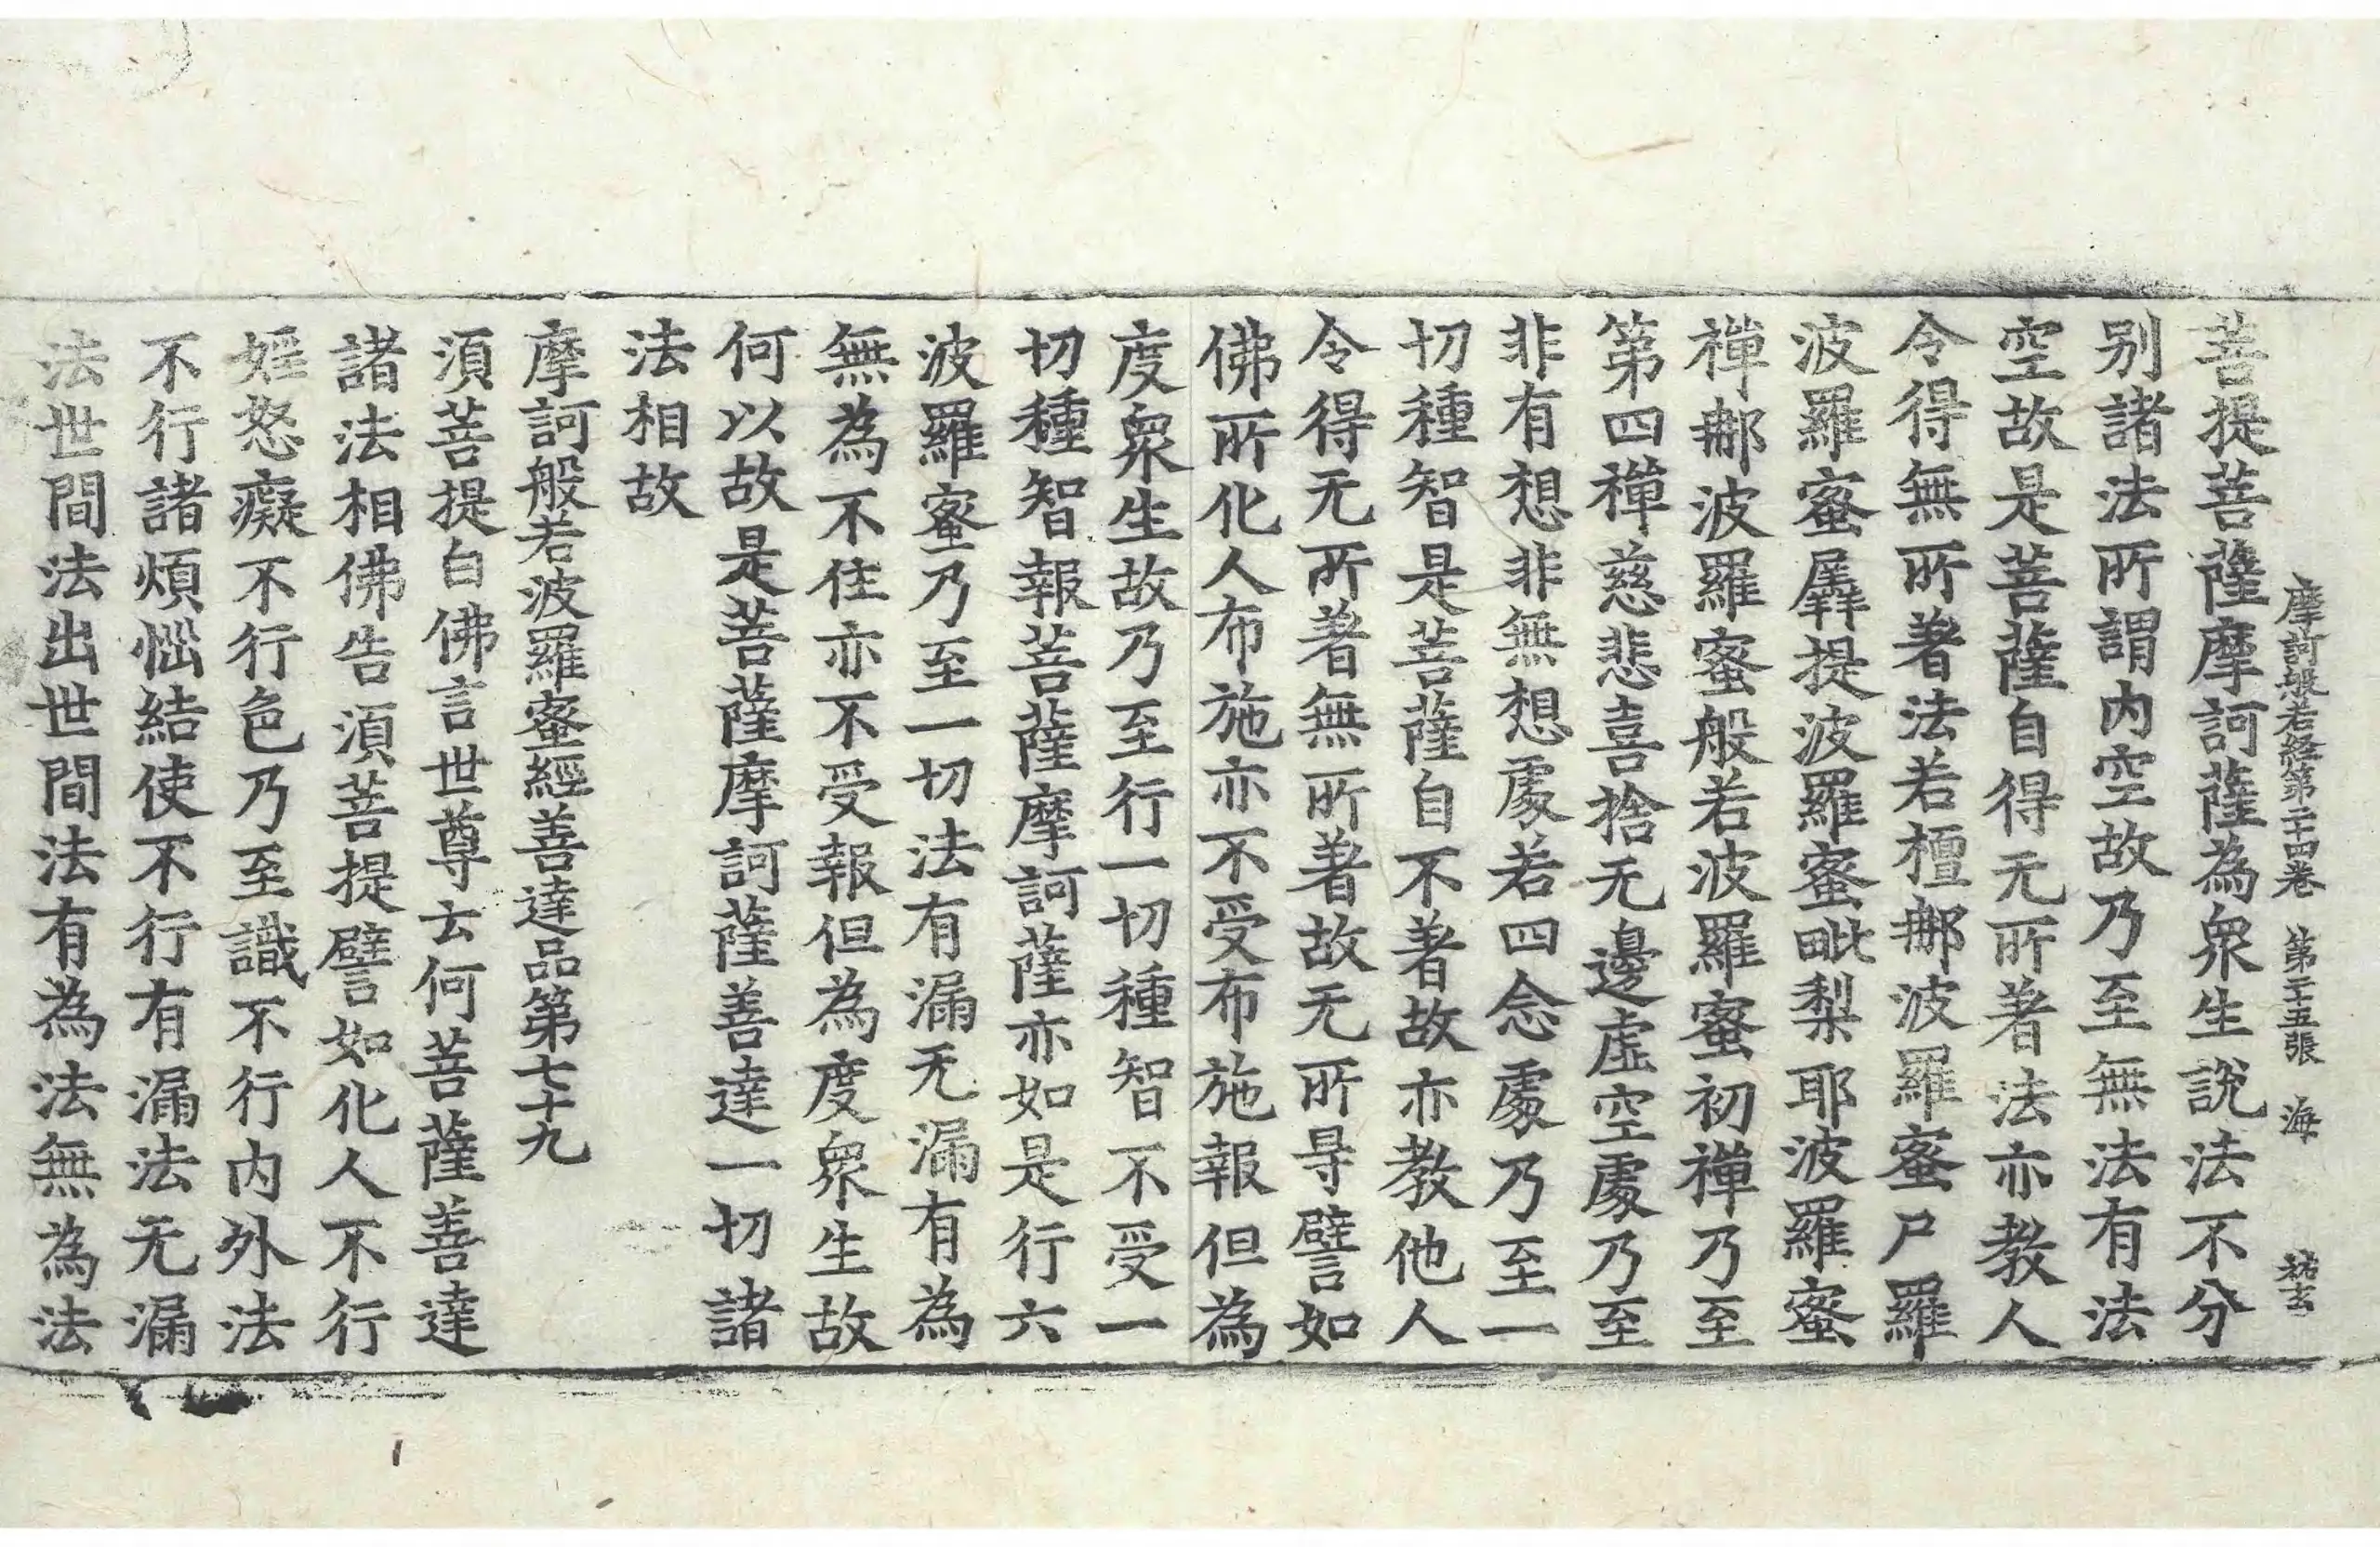 摩訶般若經第二十四卷 第二十五張 海 祐玄
菩提菩薩摩訶薩為衆生說法不分
别諸法所謂内空故乃至無法有法
空故是菩薩自得无所著法亦教人
令得無所著法若檀郍波羅蜜尸羅
波羅蜜羼提波羅蜜毗梨耶波羅蜜
禪郍波羅蜜般若波羅蜜初禪乃至
第四禪慈悲喜捨无邊虛空處乃至
非有想非無想處若四念處乃至一
切種智是菩薩自不著故亦教他人
令得无所著無所著故无所㝵譬如
佛所化人布施亦不受布施報但為
度衆生故乃至行一切種智不受一
切種智報菩薩摩訶薩亦如是行六
波羅蜜乃至一切法有漏无漏有為
無為不住亦不受報但為度衆生故
何以故是菩薩摩訶薩善達一切諸
法相故
摩訶般若波羅蜜經善達品第七十九
須菩提白佛言世尊云何菩薩善達
諸法相佛告須菩提譬如化人不行
婬怒癡不行色乃至識不行内外法
不行諸煩惱結使不行有漏法无漏
法世間法出世間法有為法無為法